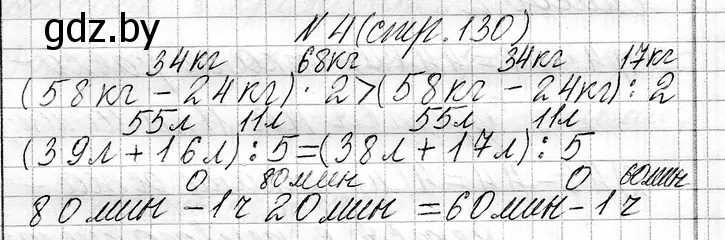 gdz.by
N 4 (стр. 130)
34кг 68кг 34кг 17кг
(58кг - 24кг) · 2 > (58кг - 24кг) : 2
55л 11л 55л 11л
(39л + 16л) : 5 = (38л + 17л) : 5
0 80мин 0 60мин
80мин - 1ч 20мин = 60мин - 1ч